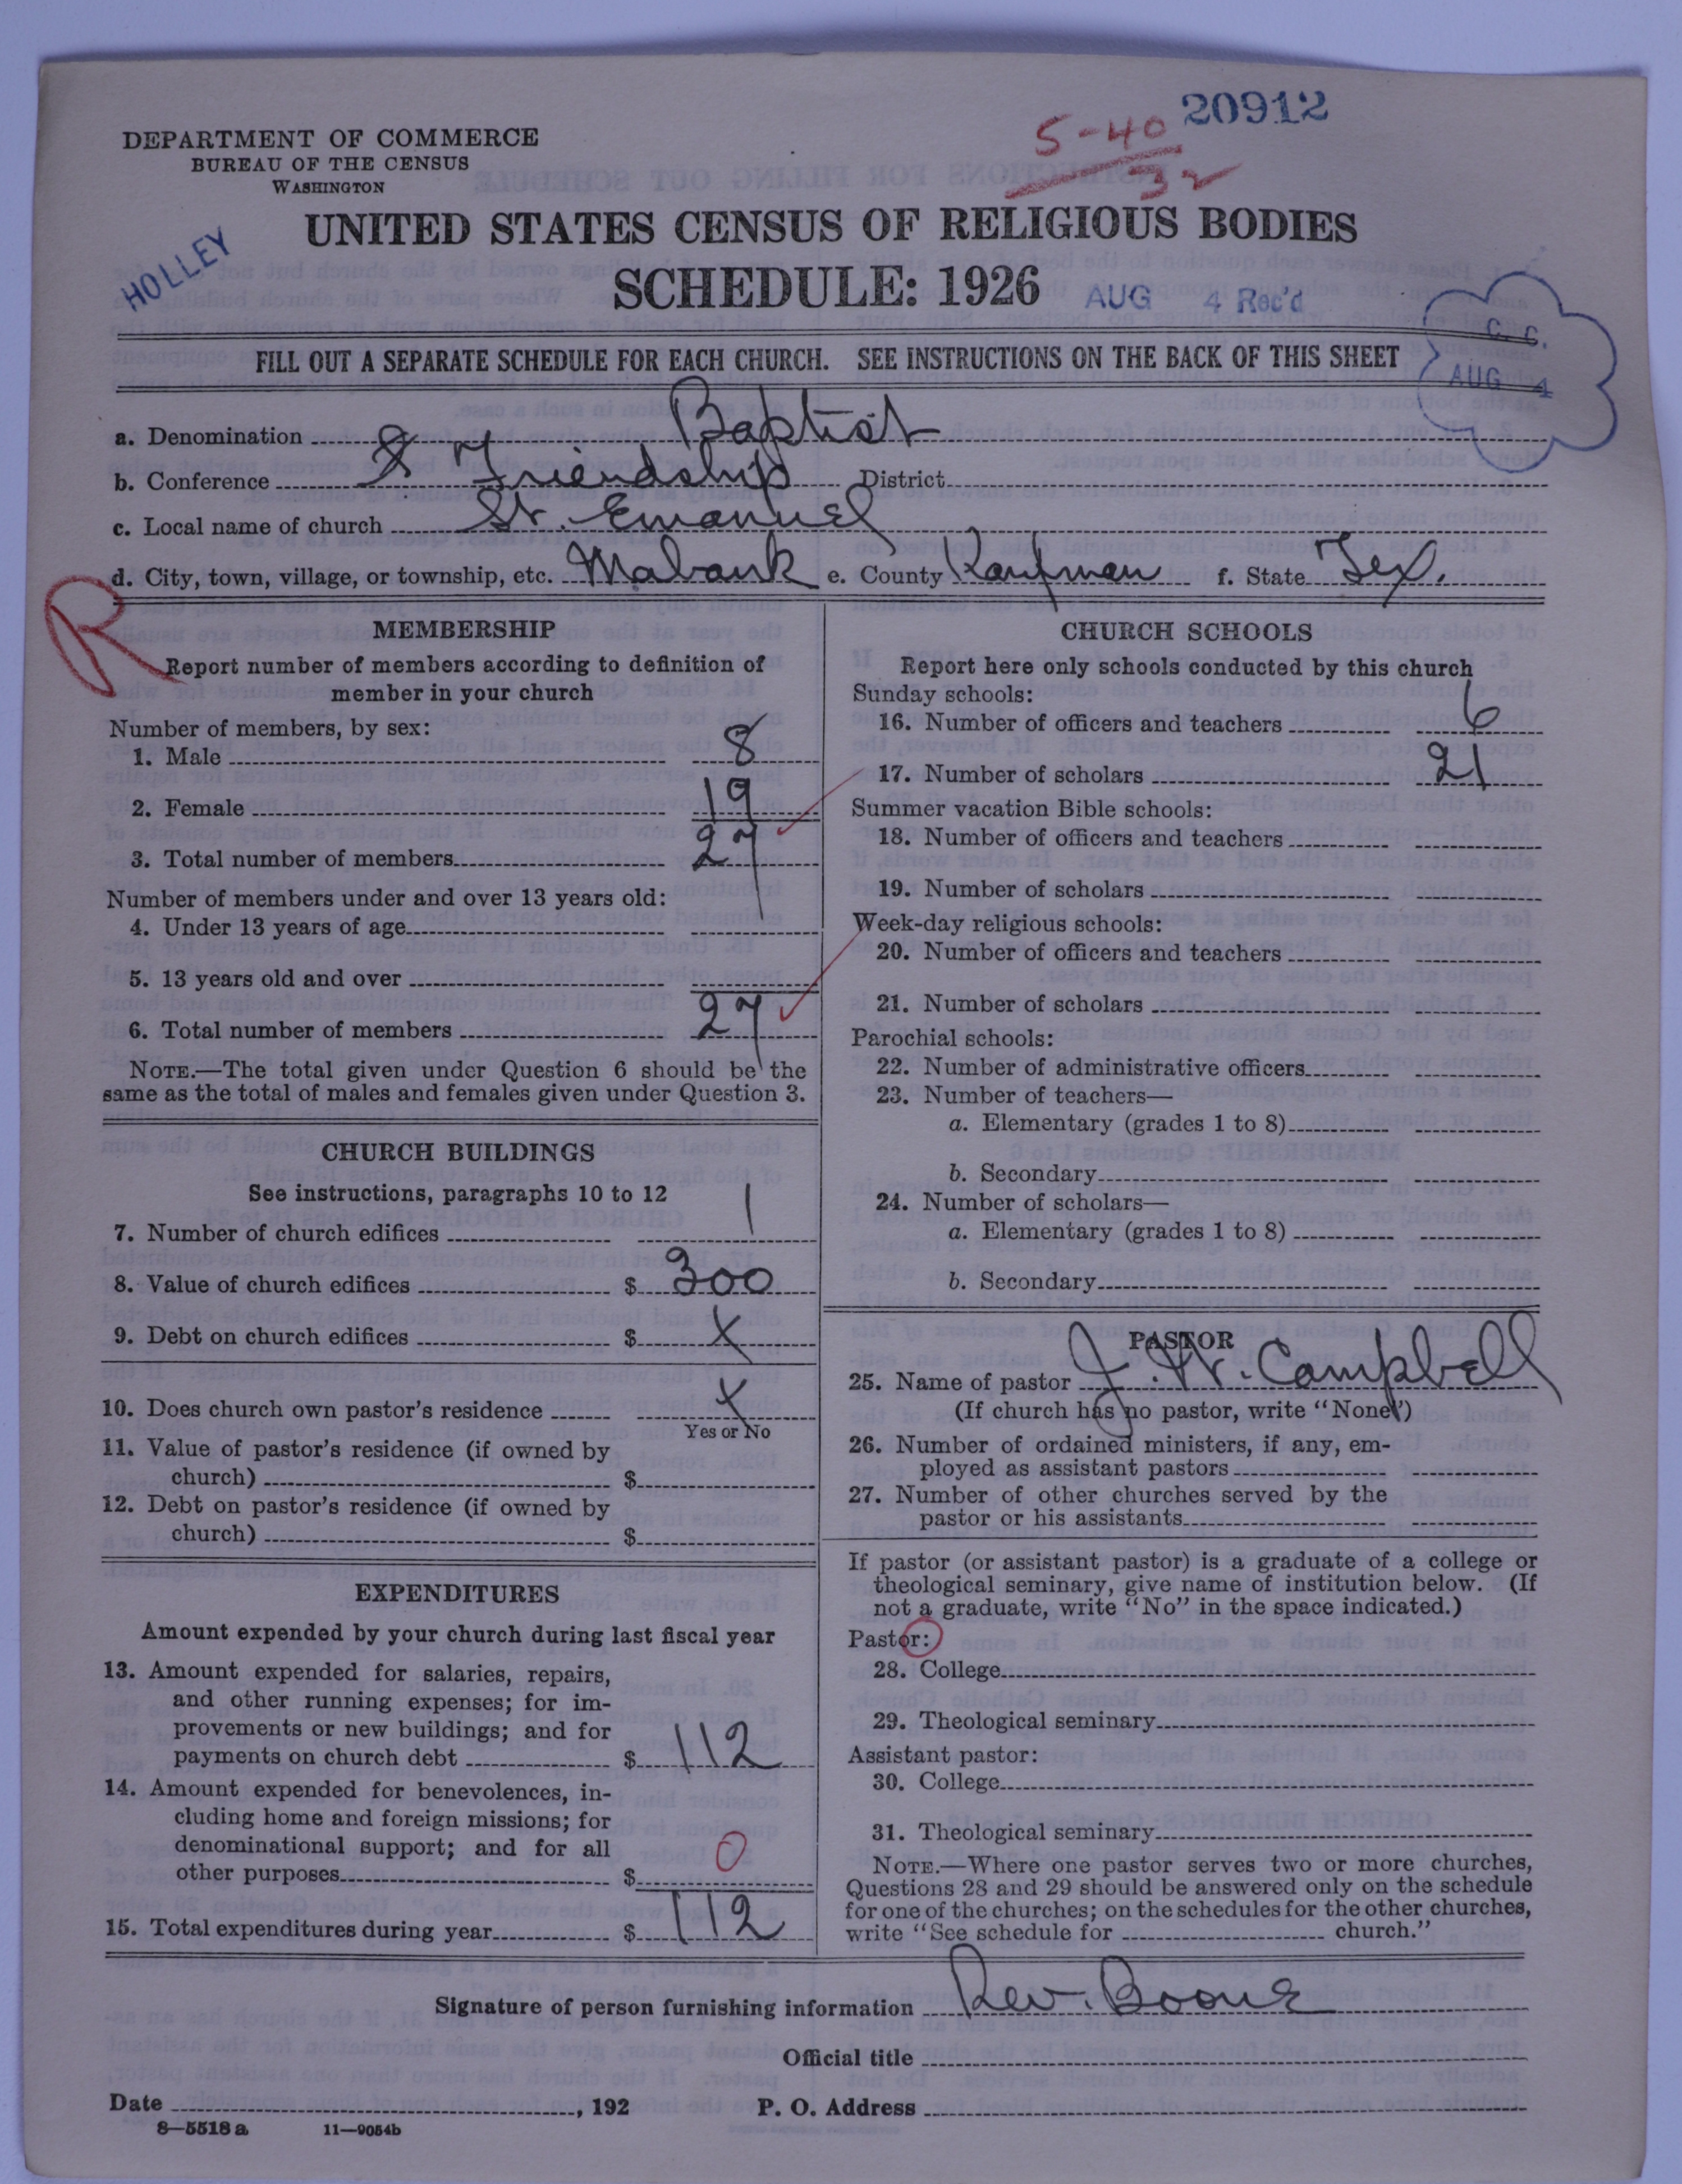 20912
5-40
32
DEPARTMENT OF COMMERCE
BUREAU OF THE CENSUS
WASHINGTON
UNITED STATES CENSUS OF RELIGIOUS BODIES
HOLLEY
SCHEDULE: 1926
AUG 4 Rec'd
C. C.
AUG 4
FILL OUT A SEPARATE SCHEDULE FOR EACH CHURCH. SEE INSTRUCTIONS ON THE BACK OF THIS SHEET
a. Denomination Baptist
b. Conference Friendship District
c. Local name of church St. Emanuel
d. City, town, village, or township, etc. Mabank e. County Kaufman f. State Tex.
R
MEMBERSHIP
Report number of members according to definition of
member in your church
Number of members, by sex:
1. Male 8
2. Female 19
3. Total number of members 27
Number of members under and over 13 years old:
4. Under 13 years of age
5. 13 years old and over
6. Total number of members 27
NOTE.—The total given under Question 6 should be the
same as the total of males and females given under Question 3.
CHURCH BUILDINGS
See instructions, paragraphs 10 to 12
7. Number of church edifices 1
8. Value of church edifices $ 300
9. Debt on church edifices $ X
10. Does church own pastor's residence X
Yes or No
11. Value of pastor's residence (if owned by
church) $
12. Debt on pastor's residence (if owned by
church) $
EXPENDITURES
Amount expended by your church during last fiscal year
13. Amount expended for salaries, repairs,
and other running expenses; for im-
provements or new buildings; and for
payments on church debt $ 112
14. Amount expended for benevolences, in-
cluding home and foreign missions; for
denominational support; and for all
other purposes $ 0
15. Total expenditures during year $ 112
CHURCH SCHOOLS
Report here only schools conducted by this church
Sunday schools:
16. Number of officers and teachers 6
17. Number of scholars 21
Summer vacation Bible schools:
18. Number of officers and teachers
19. Number of scholars
Week-day religious schools:
20. Number of officers and teachers
21. Number of scholars
Parochial schools:
22. Number of administrative officers
23. Number of teachers—
a. Elementary (grades 1 to 8)
b. Secondary
24. Number of scholars—
a. Elementary (grades 1 to 8)
b. Secondary
PASTOR
25. Name of pastor J. W. Campbell
(If church has no pastor, write "None")
26. Number of ordained ministers, if any, em-
ployed as assistant pastors
27. Number of other churches served by the
pastor or his assistants
If pastor (or assistant pastor) is a graduate of a college or
theological seminary, give name of institution below. (If
not a graduate, write "No" in the space indicated.)
Pastor:
28. College
29. Theological seminary
Assistant pastor:
30. College
31. Theological seminary
NOTE.—Where one pastor serves two or more churches,
Questions 28 and 29 should be answered only on the schedule
for one of the churches; on the schedules for the other churches,
write "See schedule for church."
Signature of person furnishing information Rev. Boone
Official title
Date , 192 P. O. Address
8—5518 a 11—9054b